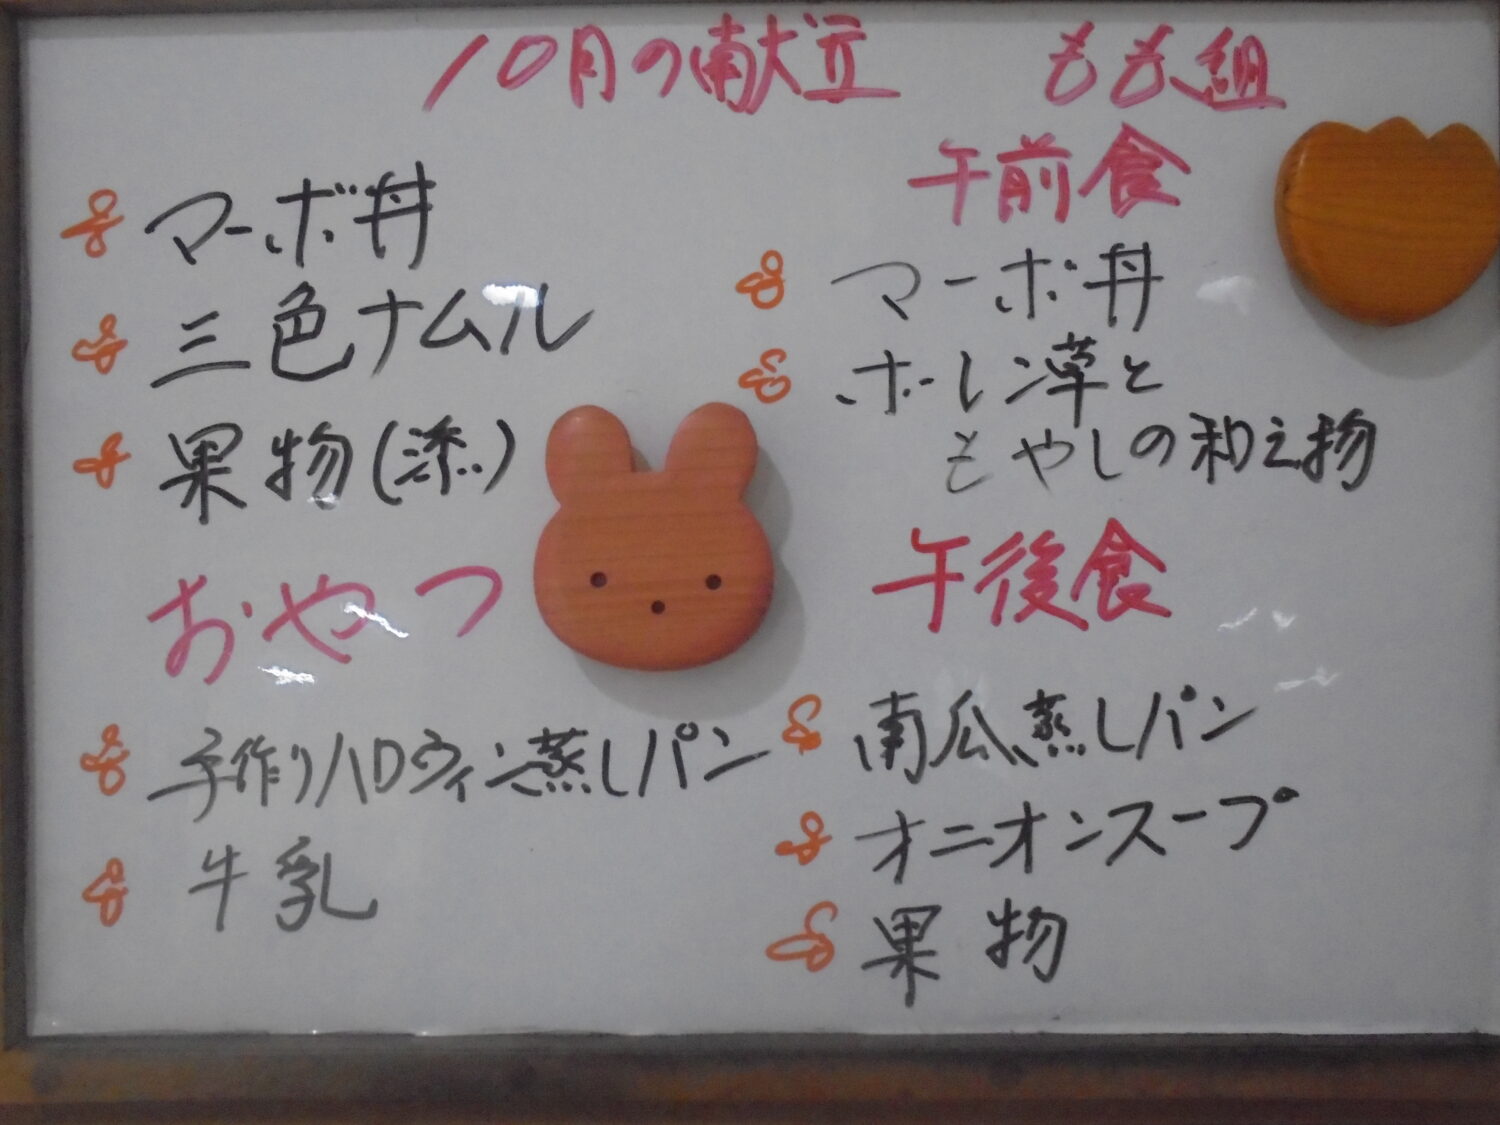 10月の献立 もも組
マーボ丼
三色ナムル
果物(添)
おやつ
手作りハロウィン蒸しパン
牛乳
午前食
マーボ丼
ホーレン草と
もやしの和え物
午後食
南瓜蒸しパン
オニオンスープ
果物